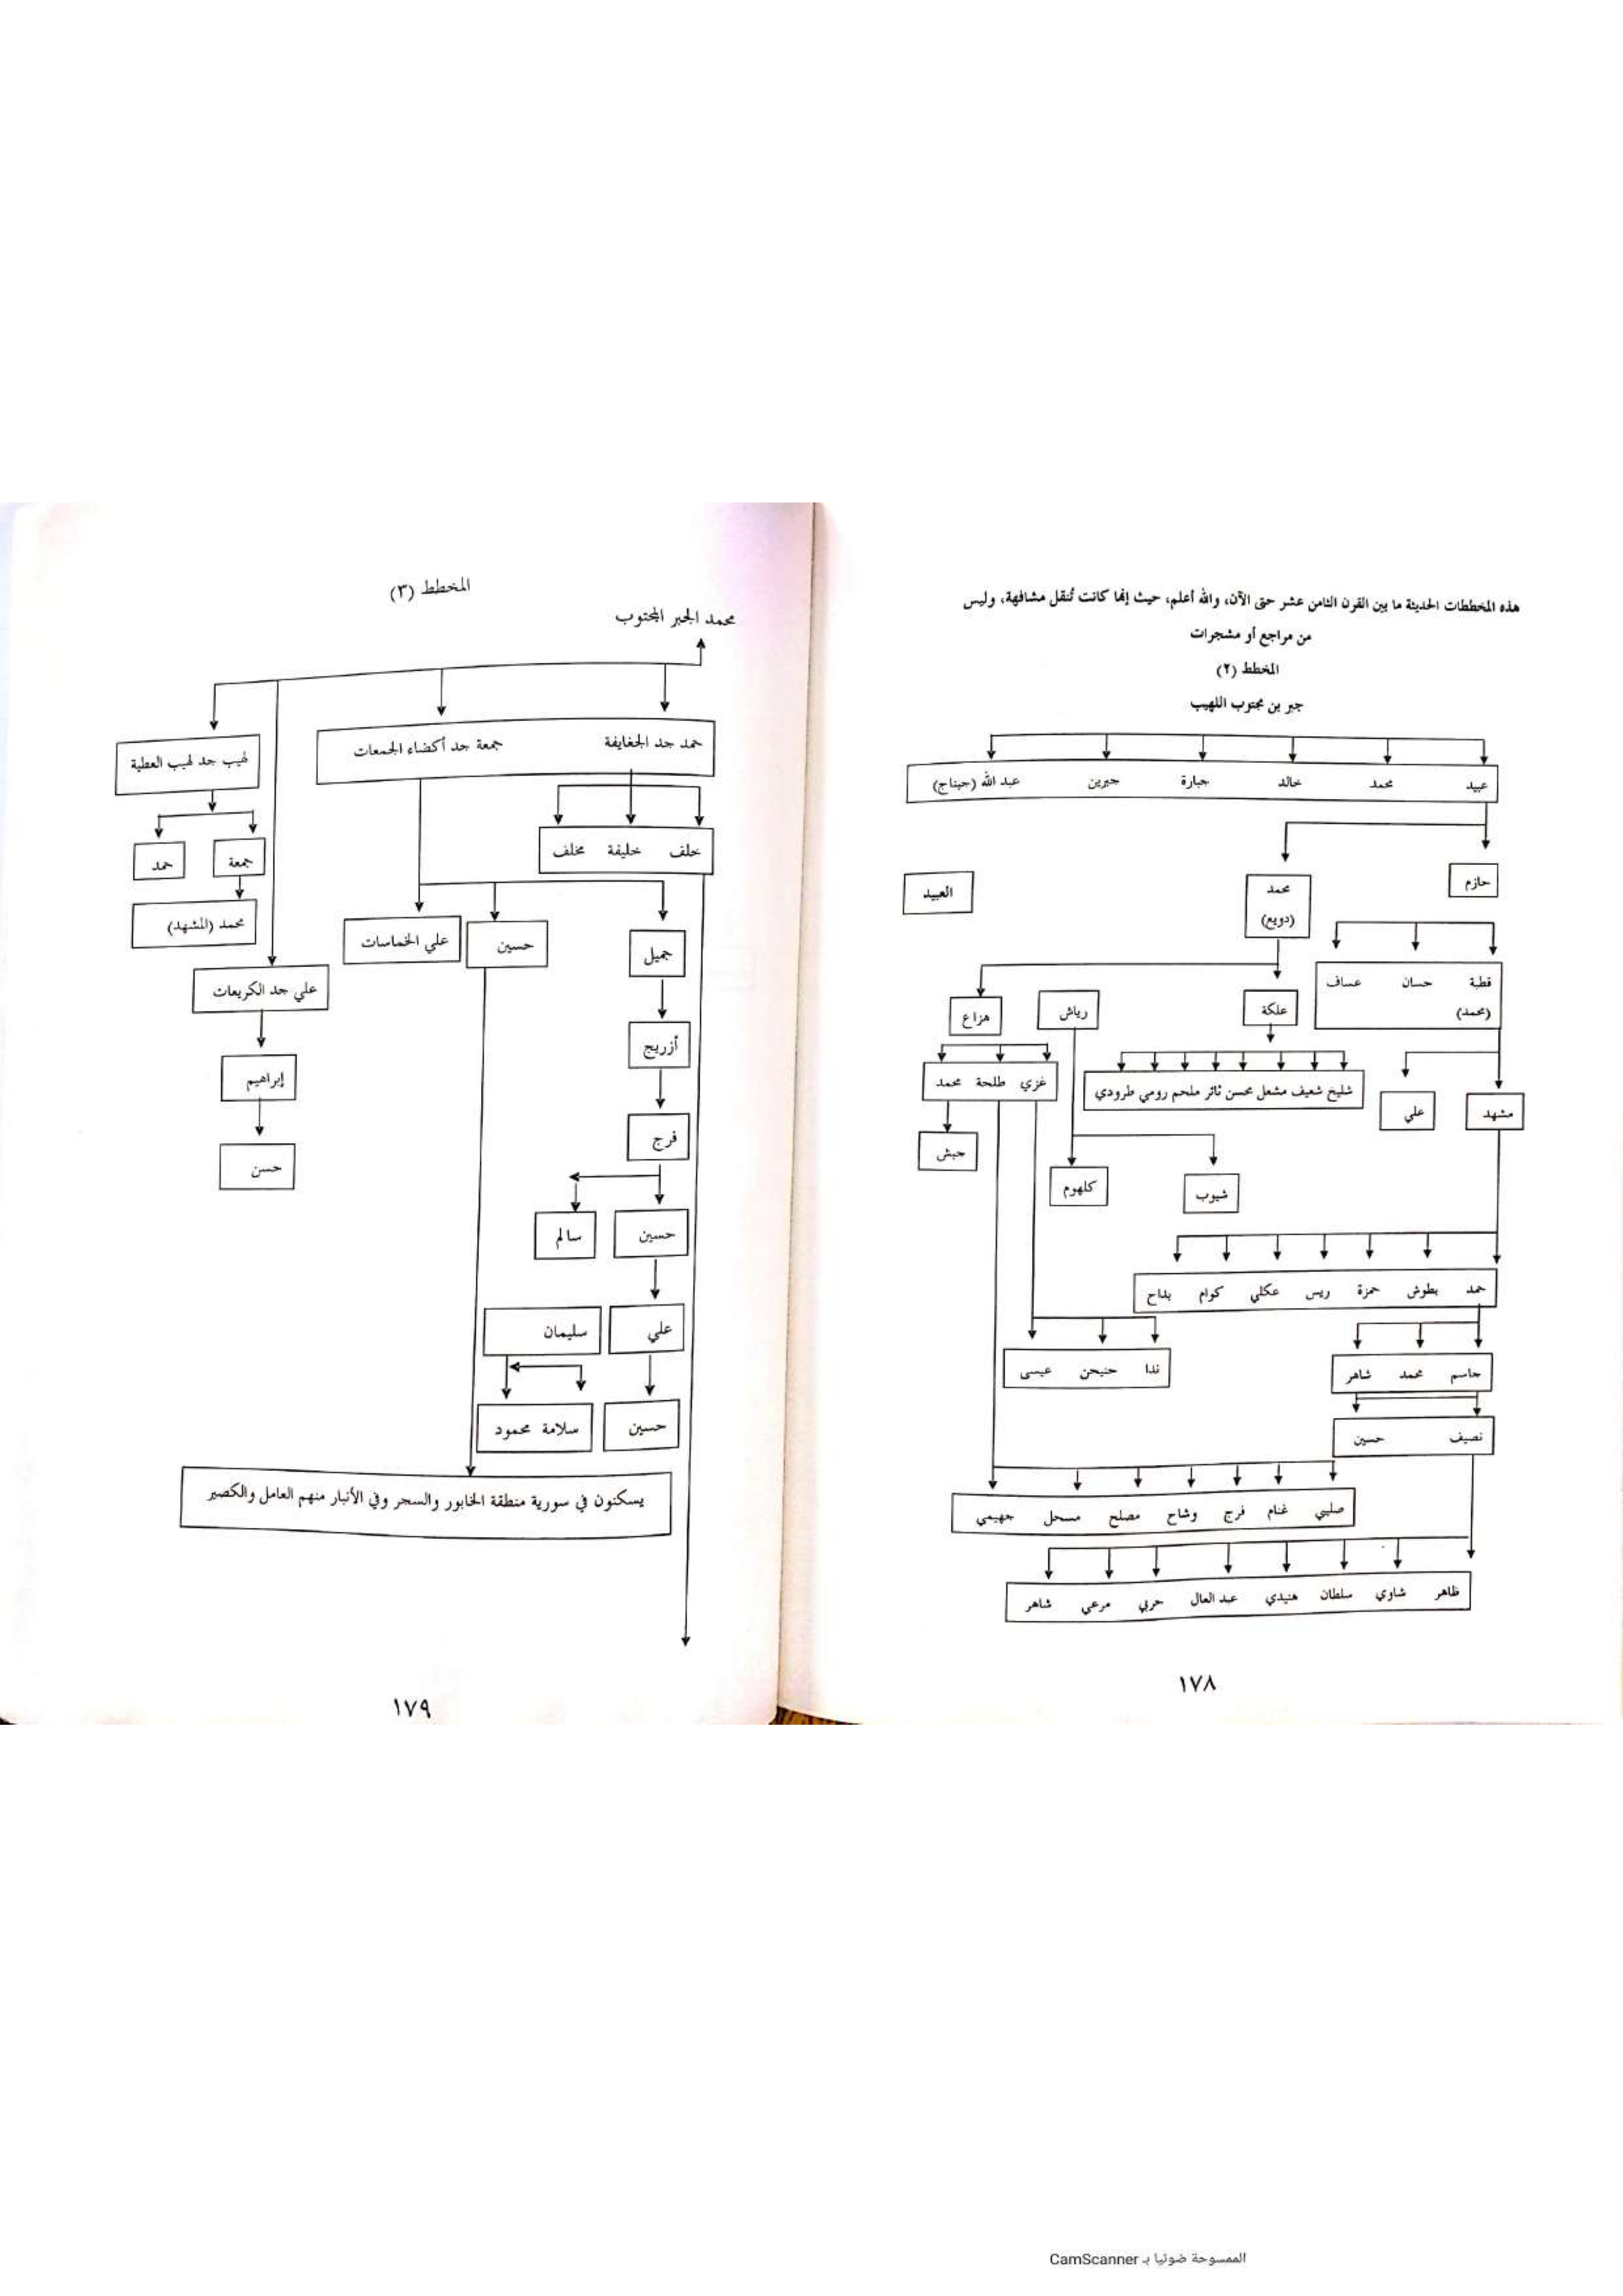 هذه المخططات الحديثة ما بين القرن الثامن عشر حتى الآن، والله أعلم، حيث إنها كانت تُنقل مشافهة، وليس
من مراجع أو مشجرات
المخطط (٢)
جبر بن مجتوب اللهيب
عبيد محمد خالد جبارة جبرين عبد الله (جيناج)
حازم
محمد
(دويع)
العبيد
قطبة حسان عساف
(محمد)
علكة
رياش
هزاع
غزي طلحة محمد
شليخ شعيف مشعل محسن ثائر ملحم رومي طرودي
علي
مشهد
حبش
كلهوم
شيوب
حمد بطوش حمزة ريس عكلي كوام بداح
ندا حنيحن عيسى
جاسم محمد شاهر
نصيف حسين
صليبي غنام فرج وشاح مصلح مسحل جهيمي
ظاهر شاوي سلطان هنيدي عبد العال حربي مرعي شاهر
١٧٨
المخطط (٣)
محمد الجبر المجتوب
حمد جد الجغايفة جمعة جد أكضاء الجمعات
لهيب جد لهيب العطية
خلف خليفة مخلف
جمعة
حمد
محمد (المشهد)
جميل
حسين
علي الخماسات
علي جد الكريعات
أزريج
إبراهيم
فرج
حسن
حسين
سالم
علي
سليمان
حسين
سلامة محمود
يسكنون في سورية منطقة الخابور والسجر وفي الأنبار منهم العامل والكصير
١٧٩
الممسوحة ضوئيا بـ CamScanner